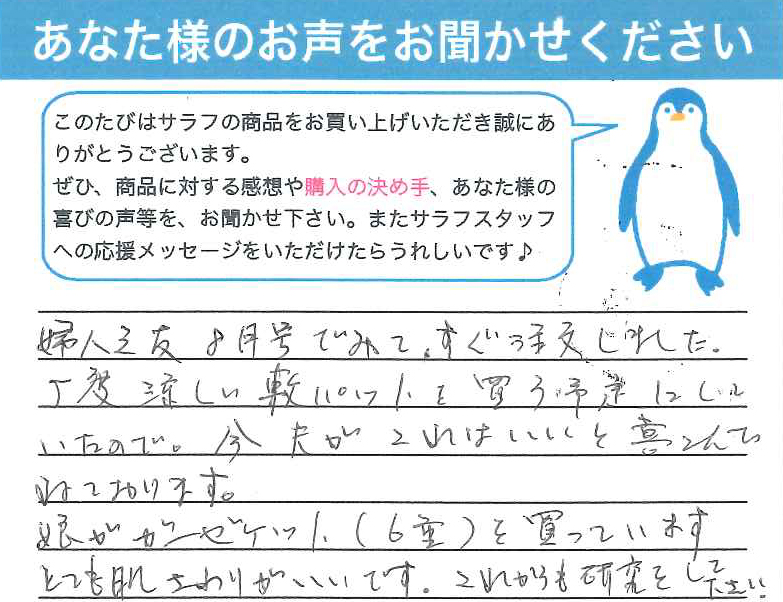 あなた様のお声をお聞かせください
このたびはサラフの商品をお買い上げいただき誠にあ
りがとうございます。
ぜひ、商品に対する感想や購入の決め手、あなた様の
喜びの声等を、お聞かせ下さい。またサラフスタッフ
への応援メッセージをいただけたらうれしいです♪
婦人之友 8月号でみて、すぐ注文しました。
丁度涼しい敷パットを買う予定にして
いたので。今夫がこれはいいと喜こんで
ねております。
娘がガーゼケット(6重)を買っています
とても肌ざわりがいいです。これからも研究をして
下さい。